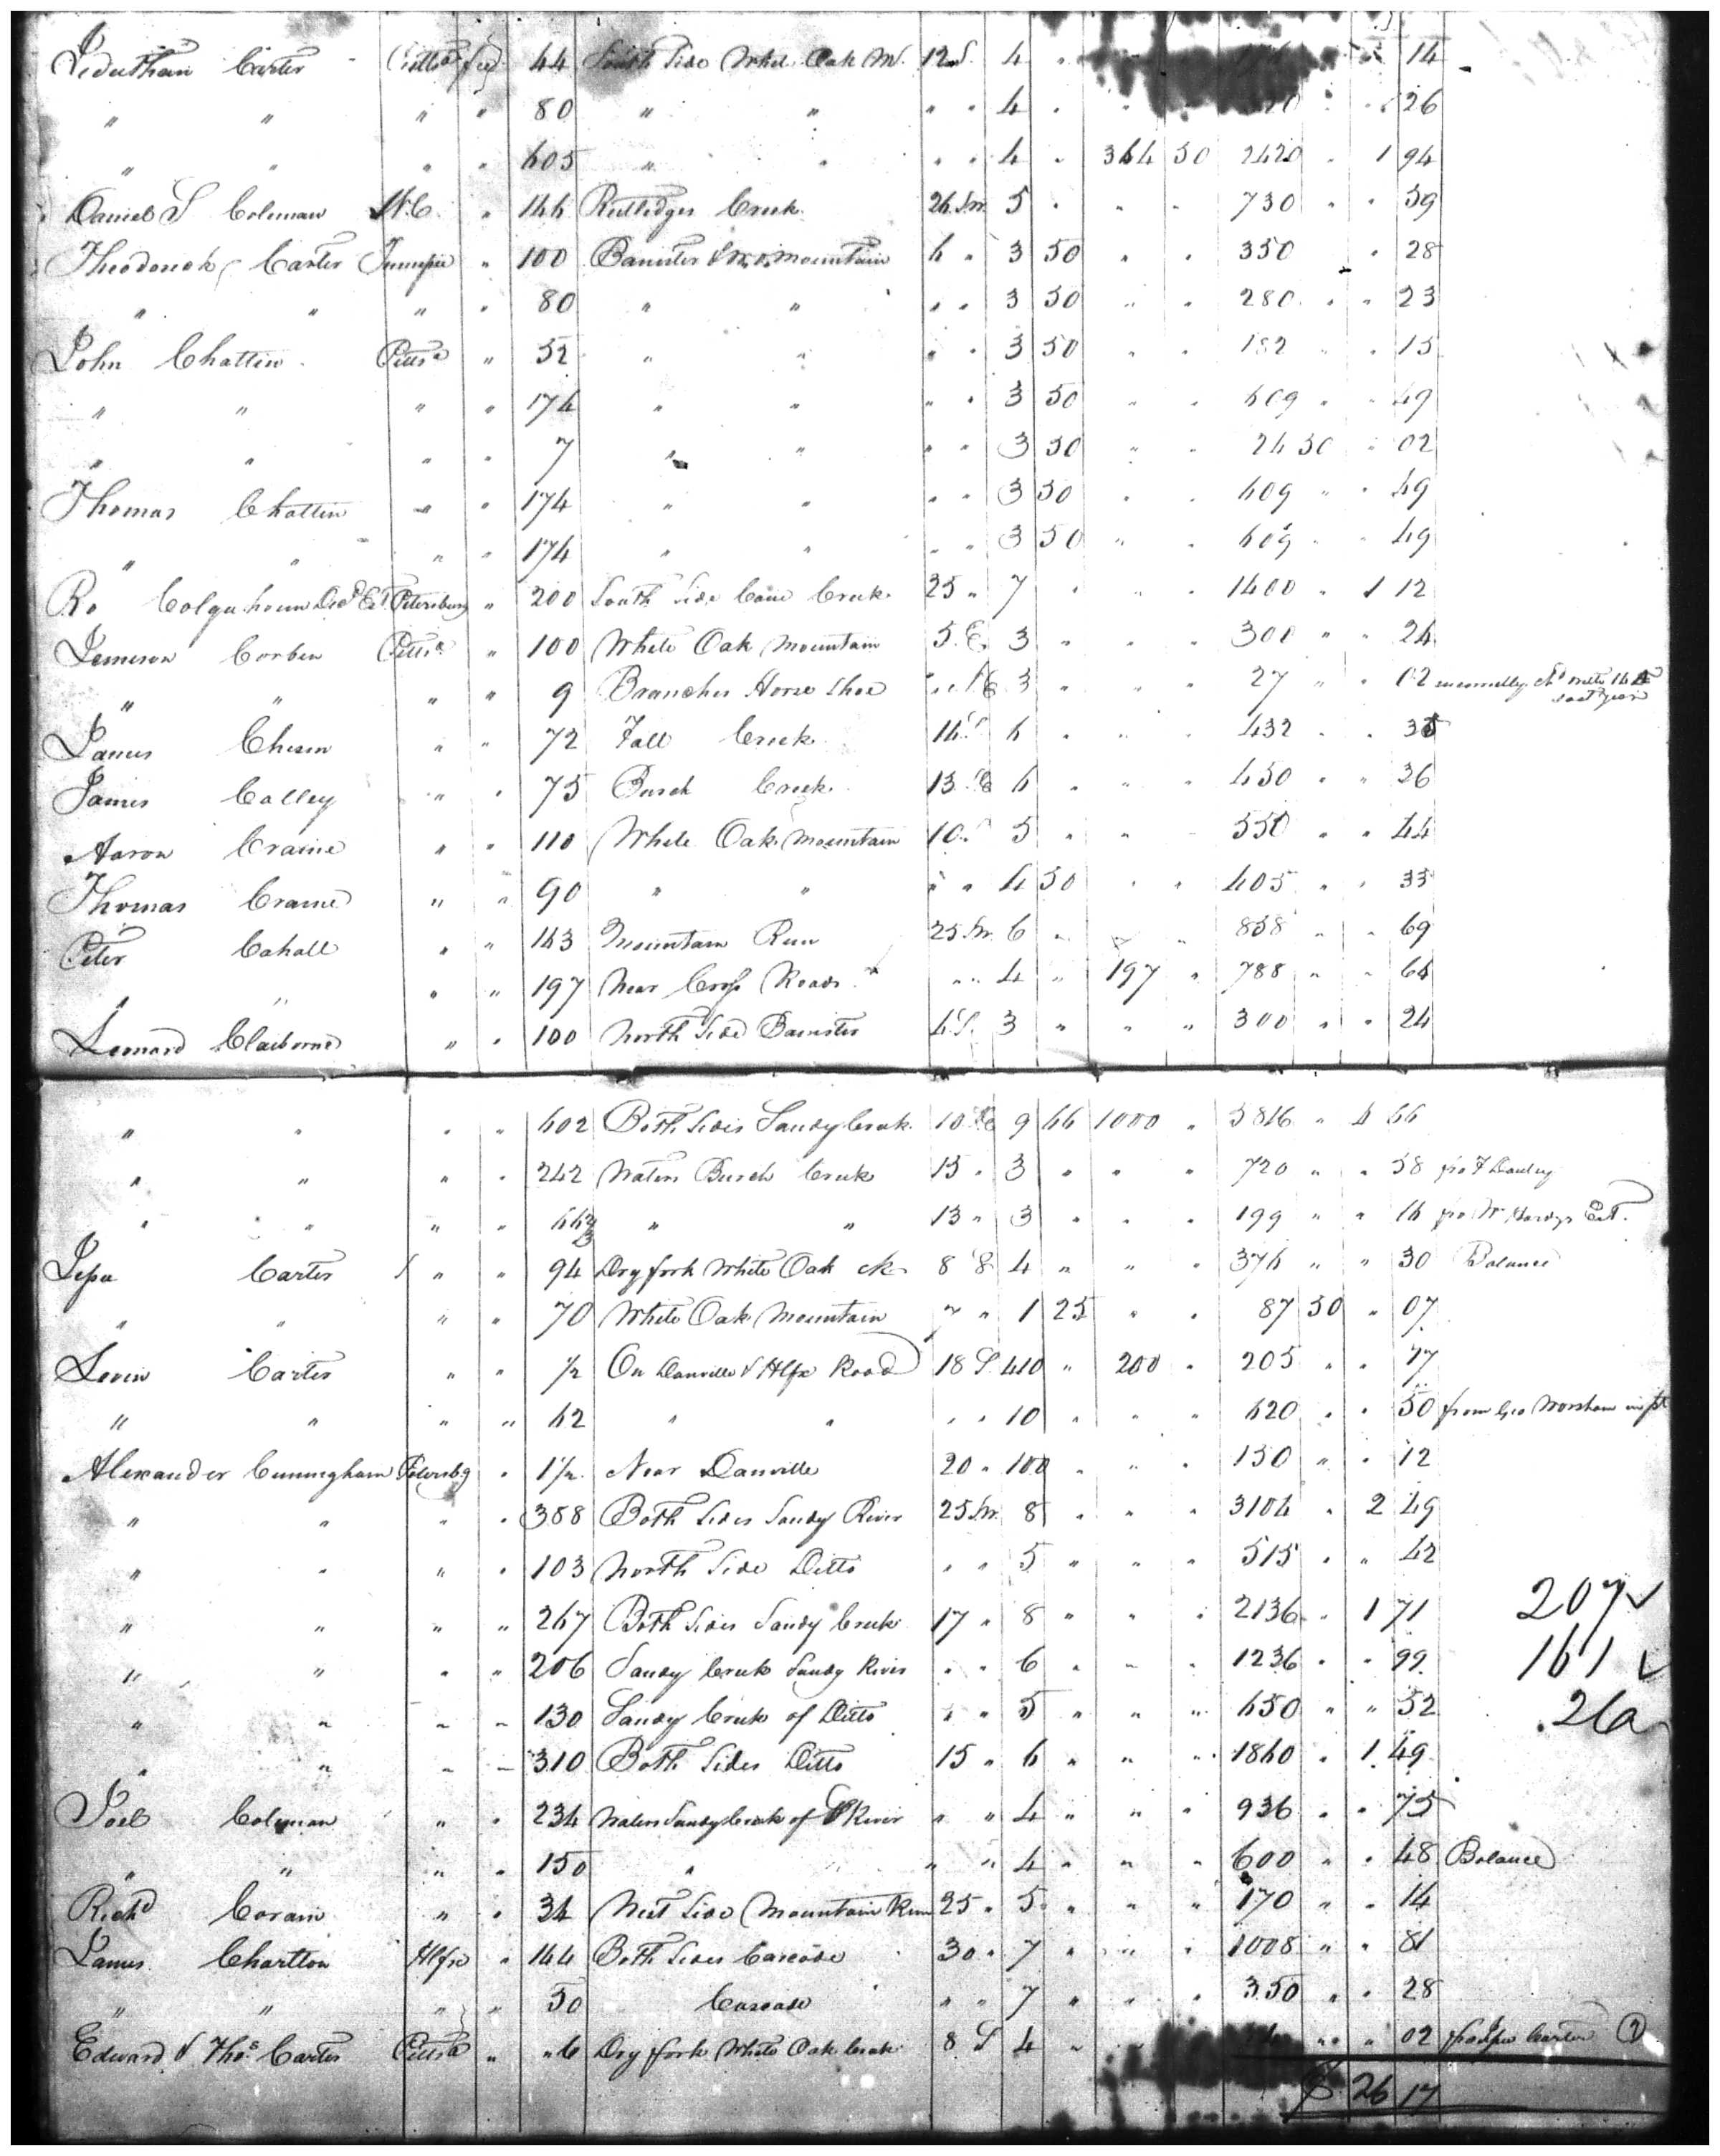 Jeduthan Carter " Pittsa fee 44 South Side White Oak M. 12 S. 4 " 14
" " " " 80 " " " " 4 " " 26
" " " " 605 " " " " 4 " 364 50 2420 " 1 94
Daniel S Coleman N.C. " 146 Rutledges Creek 26 Sw 5 " " " 730 " " 59
Theodorick Carter " 100 Banister & W.O. Mountain 6 " 3 50 " " 350 " 28
" " " " 80 " " " " 3 50 " " 280 " " 23
John Chattin Pittsa " 52 " " " " 3 50 " " 182 " " 15
" " " " 174 " " " " 3 50 " " 609 " " 49
" " " " 7 " " " " 3 50 " " 24 50 " 02
Thomas Chattin " " 174 " " " " 3 50 " " 609 " " 49
" " " " 174 " " " " 3 50 " " 609 " " 49
Ro Colquhoun Decd Est Petersburg " 200 South Side Cane Creek 25 " 7 " " " 1400 " 1 12
Jemerson Corben Pittsa " 100 White Oak Mountain 5 E 3 " " " 300 " " 24
" " " " 9 Branches Horse Shoe " NE 3 " " " 27 " " 02 last year
James Chism " " 72 Fall Creek 14 S 6 " " " 432 " " 35
James Colley " " 75 Burch Creek 13 E 6 " " " 450 " " 36
Aaron Craine " " 110 White Oak Mountain 10 " 5 " " " 550 " " 44
Thomas Craine " " 90 " " " " 4 50 " " 405 " " 33
Peter Cahall " " 143 Mountain Run 25 Sw 6 " " " 858 " " 69
" " " 197 Near Cross Roads " " 4 " 197 " 788 " " 64
Leonard Claiborne " " 100 North Side Banister 4 S. 3 " " " 300 " " 24
" " " " 602 Both Sides Sandy Creek 10 E 9 66 1000 " 5816 " 4 66
" " " " 242 Waters Burch Creek 13 " 3 " " " 720 " " 58
" " " " 66 2/3 " " 13 " 3 " " " 199 " " 16 Est.
Jesse Carter " " 94 Dry fork White Oak ck 8 S 4 " " " 376 " " 30 Balance
" " " " 70 White Oak Mountain " " 1 25 " " 87 50 " 07
Levin Carter " " 1/2 On Danville & Hlfx Road 18 S 410 " 200 " 205 " " 17
" " " " 62 " " " " 10 " " " 620 " " 50 from Geo Worsham
Alexander Cuningham Petersbg " 1 1/2 Near Danville 20 " 100 " " " 150 " " 12
" " " " 388 Both Sides Sandy River 25 Sw 8 " " " 3104 " 2 49
" " " " 103 North Side Ditto " " 5 " " " 515 " " 42
" " " " 267 Both Sides Sandy Creek 17 " 8 " " " 2136 " 1 71 207 ✓
" " " " 206 Sandy Creek Sandy River " " 6 " " " 1236 " " 99 161 ✓
" " " " 130 Sandy Creek of Ditto " " 5 " " " 650 " " 52 .26a
" " " " 310 Both Sides Ditto 15 " 6 " " " 1860 " 1 49
Joel Coleman " " 234 Waters Sandy Creek of River " " 4 " " " 936 " " 75
" " " " 150 " " " " 4 " " " 600 " " 48 Balance
Richd Corain " " 34 West Side Mountain Run 25 " 5 " " " 170 " " 14
James Charlton Hlfx " 144 Both Sides Cascade 30 " 7 " " " 1008 " " 81
" " " " 50 Cascade " " 7 " " " 350 " " 28
Edward & Thos Carter Pittsa " " 6 Dry fork White Oak Creek 8 S 4 " " " 02 Carter
$ 26 17